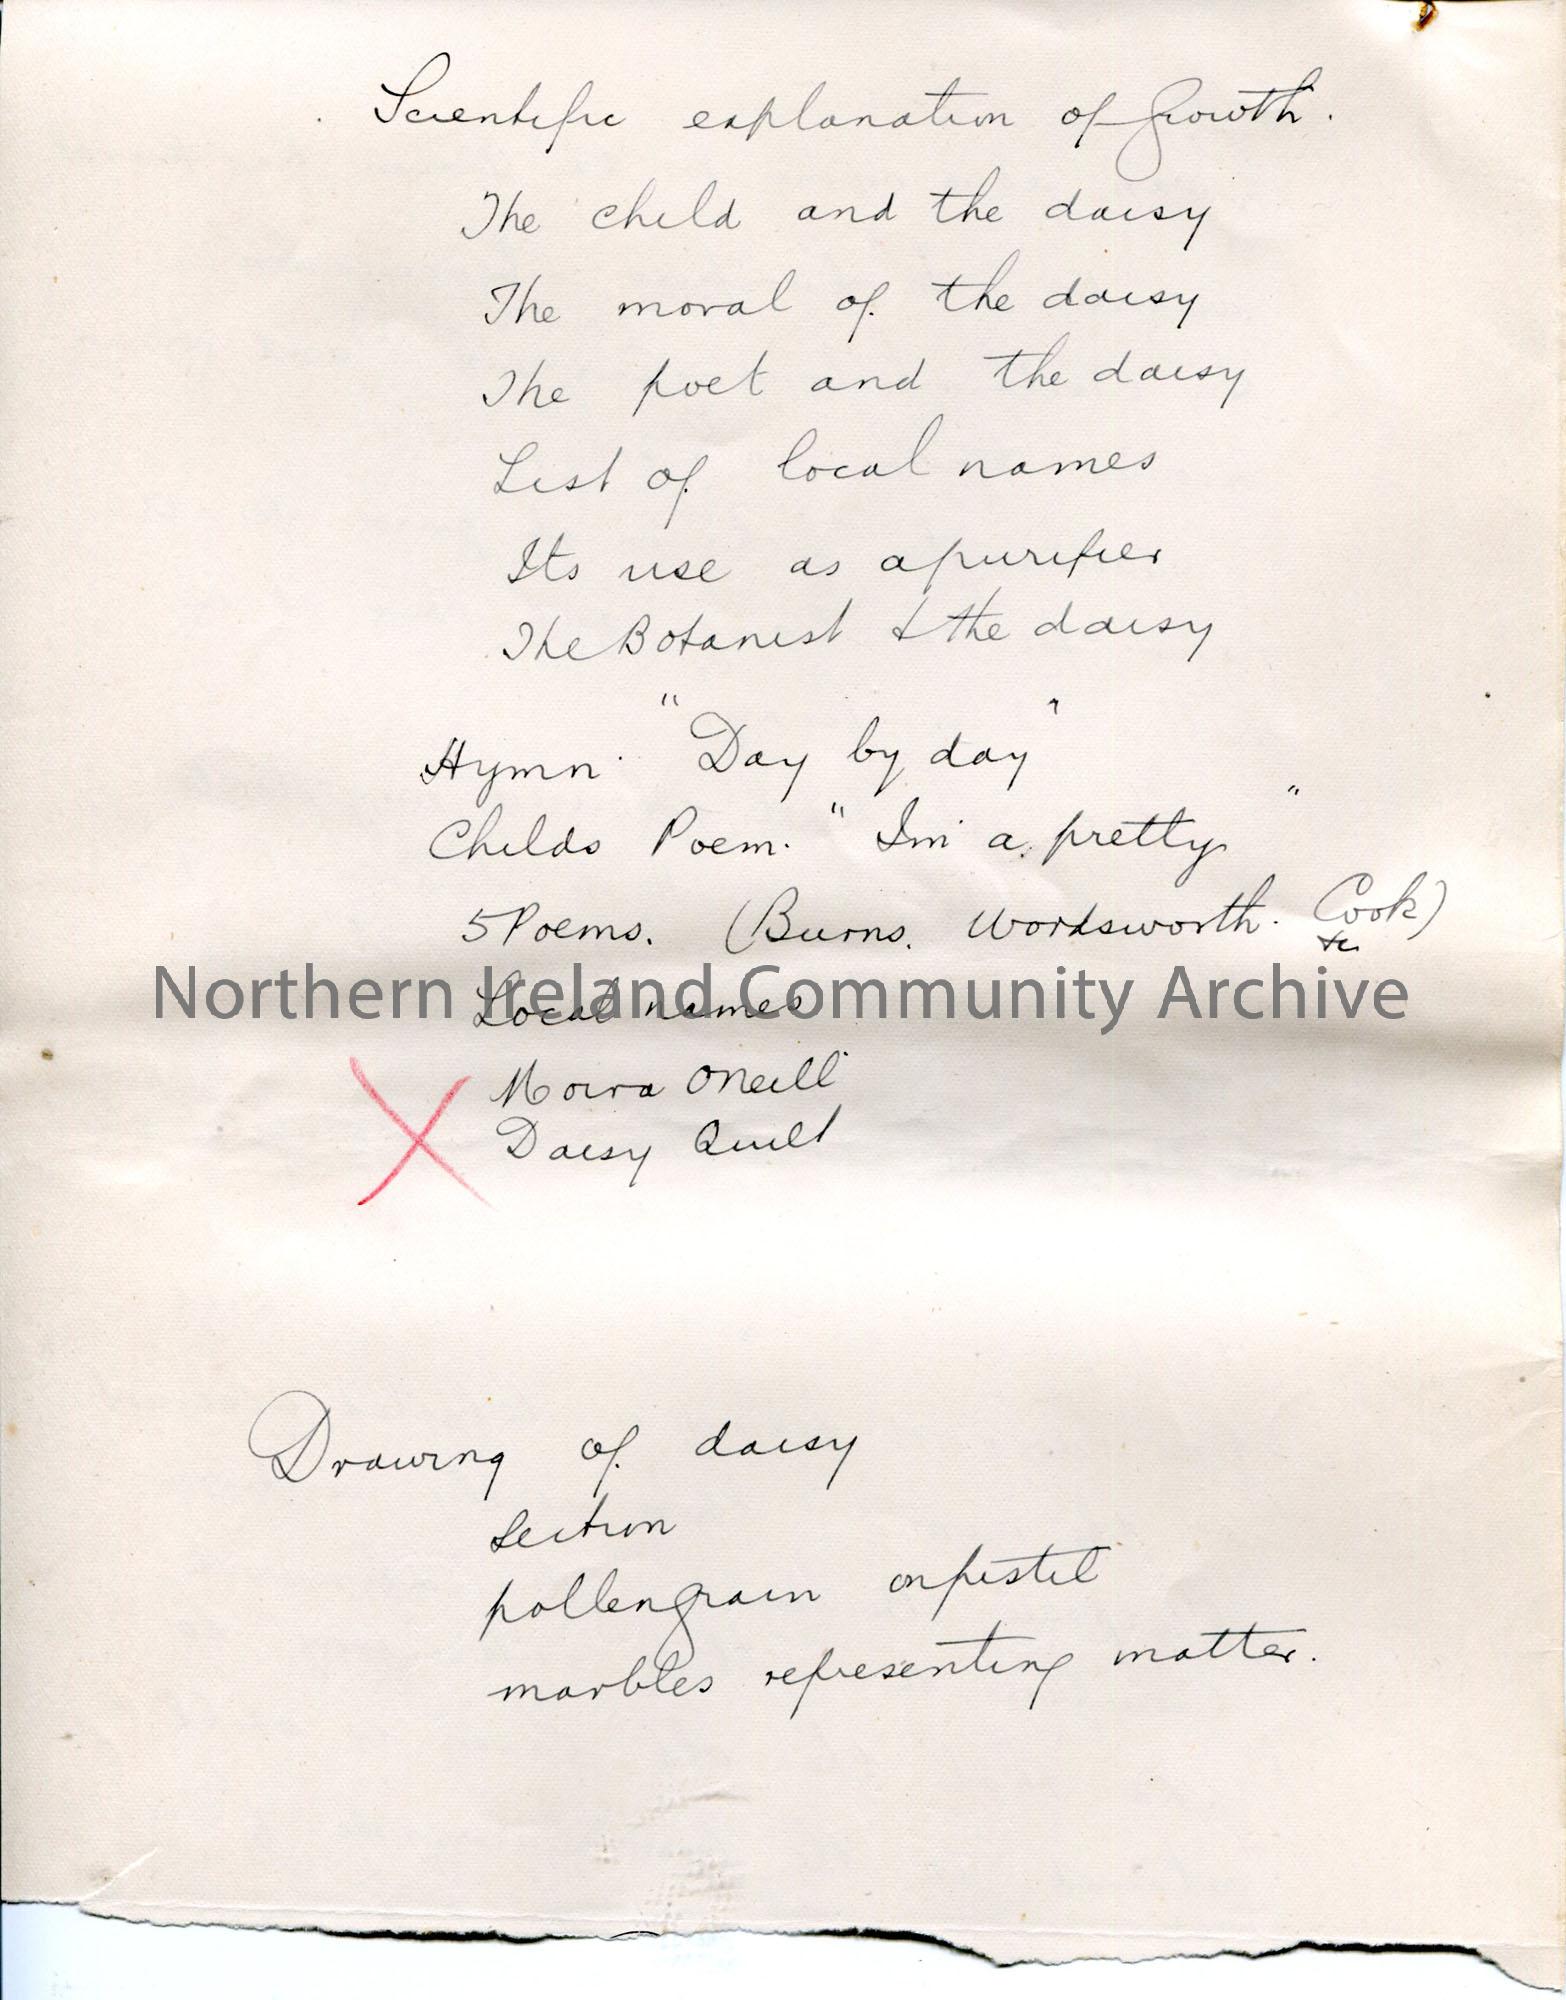 Scientific explanation of Growth.
The child and the daisy
The moral of the daisy
The poet and the daisy
List of local names
Its use as a purifier
The Botanist & the daisy
Hymn. "Day by day"
Childs Poem. "Im a pretty"
5 Poems. (Burns. Wordsworth. Cook)
&c
Northern Ireland Community Archive
Local names
Moira ONeill
Daisy Quilt
Drawing of daisy
section
pollengrain on pistil
marbles representing matter.